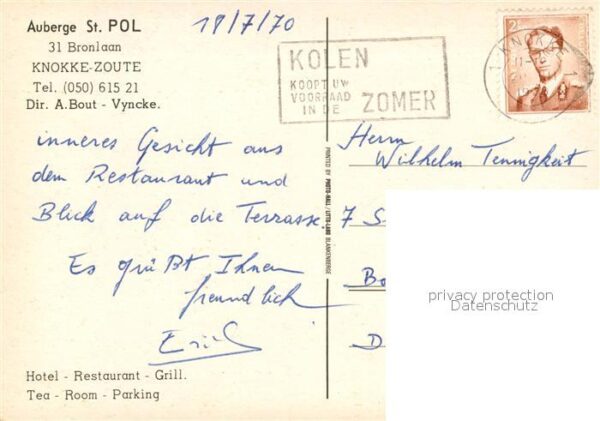 Auberge St. POL
31 Bronlaan
KNOKKE-ZOUTE
Tel. (050) 615 21
Dir. A.Bout - Vyncke.
18/7/70
KOLEN
KOOPT UW
VOORRAAD
IN DE
ZOMER
KNOKKE
inneres Gesicht aus
dem Restaurant und
Blick auf die Terrasse.
Es grüßt Ihnen
freundlich
Erich
Hotel - Restaurant - Grill.
Tea - Room - Parking
PRINTED BY PHOTO-HALL / LITTO-LAND BLANKENBERGE
Herrn
Wilhelm Tennigkeit
7 S
Bo
D
privacy protection
Datenschutz